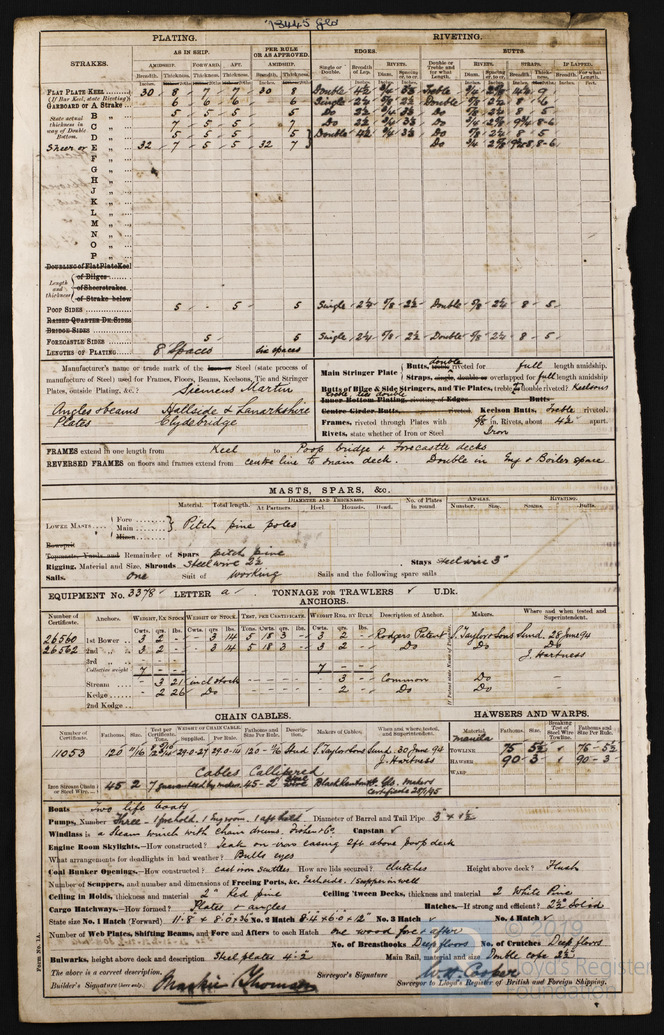 13445 Gls
PLATING. RIVETING.
STRAKES. AS IN SHIP. PER RULE OR AS APPROVED. EDGES. BUTTS.
AMIDSHIP. FORWARD. AFT. AMIDSHIP. Single or Double. Breadth of Lap. RIVETS. Double or Treble and for what Length. RIVETS. STRAPS. IF LAPPED.
Breadth. Thickness. Thickness. Thickness. Breadth. Thickness. Diam. Spacing cr. to cr. Diam. Spacing cr. to cr. Breadth. Thickness. Breadth. For what Length.
FLAT PLATE KEEL 30 8 7 7 30 8 Double 4½ ¾ Treble ¾ 9
(If Bar Keel, state Riveting)
GARBOARD or A Strake 6 6 6 6 Single 2½ Double 3½ 8 - 6
State actual thickness in way of Double Bottom.
B „ 5 5 5 5 Do 8 - 5
C „ 7 5 5 7 Do 8-6
D „ 5 5 5 5 Double 4½ ¾ 3½ Do 8 - 5
Sheer or E „ 32 7 5 5 32 7 Do 8-6
F „
G „
H „
J „
K „
L „
M „
N „
O „
P „
DOUBLING of Flat Plate Keel
Length and thickness
of Bilges
of Sheerstrakes
of Strake below
POOP SIDES 5 5 5 Single 2¼ ⅝ 2½ Double ⅝ 2½ 8 - 5
RAISED QUARTER DK. SIDES
BRIDGE SIDES
FORECASTLE SIDES 5 5 Single 2¼ ⅝ 2½ Double ⅝ 2½ 8 - 5
LENGTHS OF PLATING 8 Spaces Six spaces
Manufacturer's name or trade mark of the Iron or Steel (state process of manufacture of Steel) used for Frames, Floors, Beams, Keelsons, Tie and Stringer Plates, outside Plating, &c.? Siemens Martin
Angles & beams Hallside & Lanarkshire
Plates Clydebridge
Main Stringer Plate Butts, double riveted for full length amidship.
Straps, single, double or overlapped for full length amidship
Butts of Bilge & Side Stringers, and Tie Plates, treble or double riveted? Keelsons treble ties double
Inner Bottom Plating, riveting of Edges Butts
Centre Girder Butts, riveted. Keelson Butts, treble riveted.
Frames, riveted through Plates with ⅝ in. Rivets, about 4½" apart.
Rivets, state whether of Iron or Steel Iron
FRAMES extend in one length from Keel to Poop bridge & Forecastle decks
REVERSED FRAMES on floors and frames extend from centre line to main deck. Double in Eng & Boiler space
MASTS, SPARS, &c.
Material. Total length. DIAMETER AND THICKNESS. No. of Plates in round. ANGLES. RIVETING.
At Partners. Heel. Hounds. Head. Number. Size. Seams. Butts.
LOWER MASTS Fore Main Mizen Pitch pine poles
Bowsprit
Topmasts, Yards and Remainder of Spars pitch pine
Rigging, Material and Size, Shrouds Steel wire 2½ Stays Steel wire 3"
Sails. One Suit of working Sails and the following spare sails
EQUIPMENT No. 3378 LETTER a TONNAGE FOR TRAWLERS U.Dk.
ANCHORS.
Number of Certificate. Anchors. WEIGHT, EX STOCK WEIGHT OF STOCK. TEST, PER CERTIFICATE. WEIGHT REQ. BY RULE Description of Anchor. Makers. Where and when tested and Superintendent.
Cwts. qrs. lbs. Cwts. qrs. lbs. Tons. Cwts. qrs. lbs. Cwts. qrs. lbs.
26560 1st Bower 3 2 - - 3 14 5 18 3 - 3 2 - Rodgers Patent S. Taylor & Sons Sund. 28 June 94
26562 2nd „ 3 2 - - 3 14 5 18 3 - 3 2 - Do Do Do
3rd „ J. Hartness
Collective weight 7 - - 7 - -
Stream - 3 21 incl stock - 3 - Common Do
Kedge - 2 26 Do - 2 - Do Do
2nd Kedge
CHAIN CABLES. HAWSERS AND WARPS.
Number of Certificate. Fathoms. Size. Test per Certificate. WEIGHT OF CHAIN CABLE. Fathoms and Size Per Rule. Description. Makers of Cables. When and where, tested, and Superintendent. Material. Fathoms. Size. Breaking Test of Steel Wire Towline. Fathoms and Size Per Rule.
Supplied. Per Rule.
11053 120 11/16 29-0-27 29-0-14 Stud S. Taylor & Sons Sund. 30 June 94 J. Hartness
manila
TOWLINE 75 5½ 75 - 5½
HAWSER 90 - 3 90 - 3
WARP
Cables Callipered
Iron Stream Chain or Steel Wire 45 2 7 guaranteed by makers 45 - 2 Gls. makers certificate
Boats Two life boats
Pumps, Number Three - 1 forehold, 1 Eng room, 1 aft hold Diameter of Barrel and Tail Pipe 3" & 1½"
Windlass is a Steam winch with chain drums. Capstan ✓
Engine Room Skylights.—How constructed? Teak on iron casing 2ft above poop deck
What arrangements for deadlights in bad weather? Bulls eyes
Coal Bunker Openings.—How constructed? cast iron scuttles How are lids secured? clutches Height above deck? Flush
Number of Scuppers, and number and dimensions of Freeing Ports, &c. 1 supper in well
Ceiling in Holds, thickness and material 2" Red pine Ceiling 'tween Decks, thickness and material 2 White Pine
Cargo Hatchways.—How formed? Plates & angles Hatches.—If strong and efficient? 2½" Solid
State size No. 1 Hatch (Forward) 11.8 x 8.0 x 36 No. 2 Hatch 8.4 x 6.0 x 12" No. 3 Hatch ✓ No. 4 Hatch ✓
Number of Web Plates, Shifting Beams, and Fore and Afters to each Hatch One wood fore & after
No. of Breasthooks Deep floors No. of Crutches Deep floors
Bulwarks, height above deck and description Steel plates 4½-2 Main Rail, material and size Double cope 2½"
The above is a correct description.
Builder's Signature (here only) Mackie & Thomson Surveyor's Signature W. H. Cooper
Surveyor to Lloyd's Register of British and Foreign Shipping.
Form No. 1A.
© 2019
Lloyd's Register Foundation